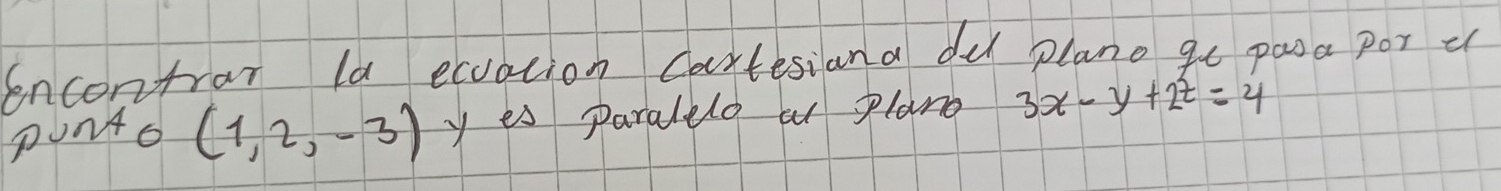 Encontrar la ecuacion cartesiana del plano qe pasa por el
punto (1, 2, -3) y es paralelo al plano 3x - y + 2z = 4